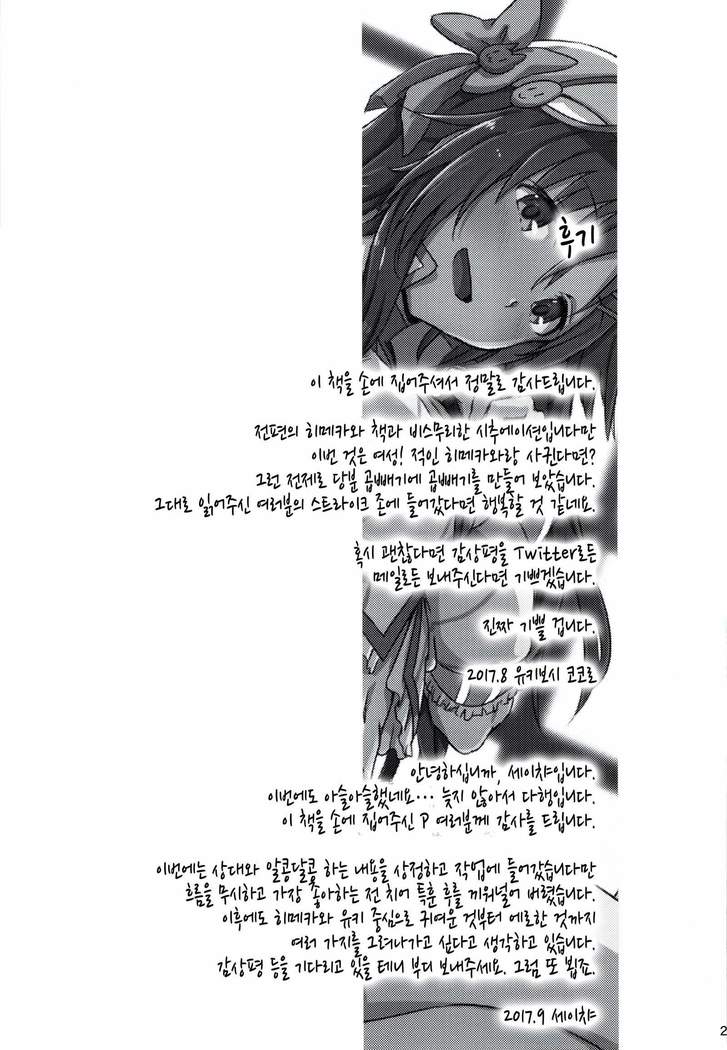 후기
이 책을 손에 집어주셔서 정말로 감사드립니다.
전편의 히메카와 책과 비스무리한 시추에이션입니다만
이번 것은 여성! 적인 히메카와랑 사귄다면?
그런 전제로 당분 곱빼기에 곱빼기를 만들어 보았습니다.
그대로 읽어주신 여러분의 스트라이크 존에 들어갔다면 행복할 것 같네요.
혹시 괜찮다면 감상평을 Twitter로든
메일로든 보내주신다면 기쁘겠습니다.
진짜 기쁠 겁니다.
2017.8 유키보시 코코로
안녕하십니까, 세이챠입니다.
이번에도 아슬아슬했네요… 늦지 않아서 다행입니다.
이 책을 손에 집어주신 P 여러분께 감사를 드립니다.
이번에는 상대와 알콩달콩 하는 내용을 상정하고 작업에 들어갔습니다만
흐름을 무시하고 가장 좋아하는 전 치어 특훈 후를 끼워넣어 버렸습니다.
이후에도 히메카와 유키 중심으로 귀여운 것부터 에로한 것까지
여러 가지를 그려나가고 싶다고 생각하고 있습니다.
감상평 등을 기다리고 있을 테니 부디 보내주세요. 그럼 또 뵙죠.
2017.9 세이챠
2